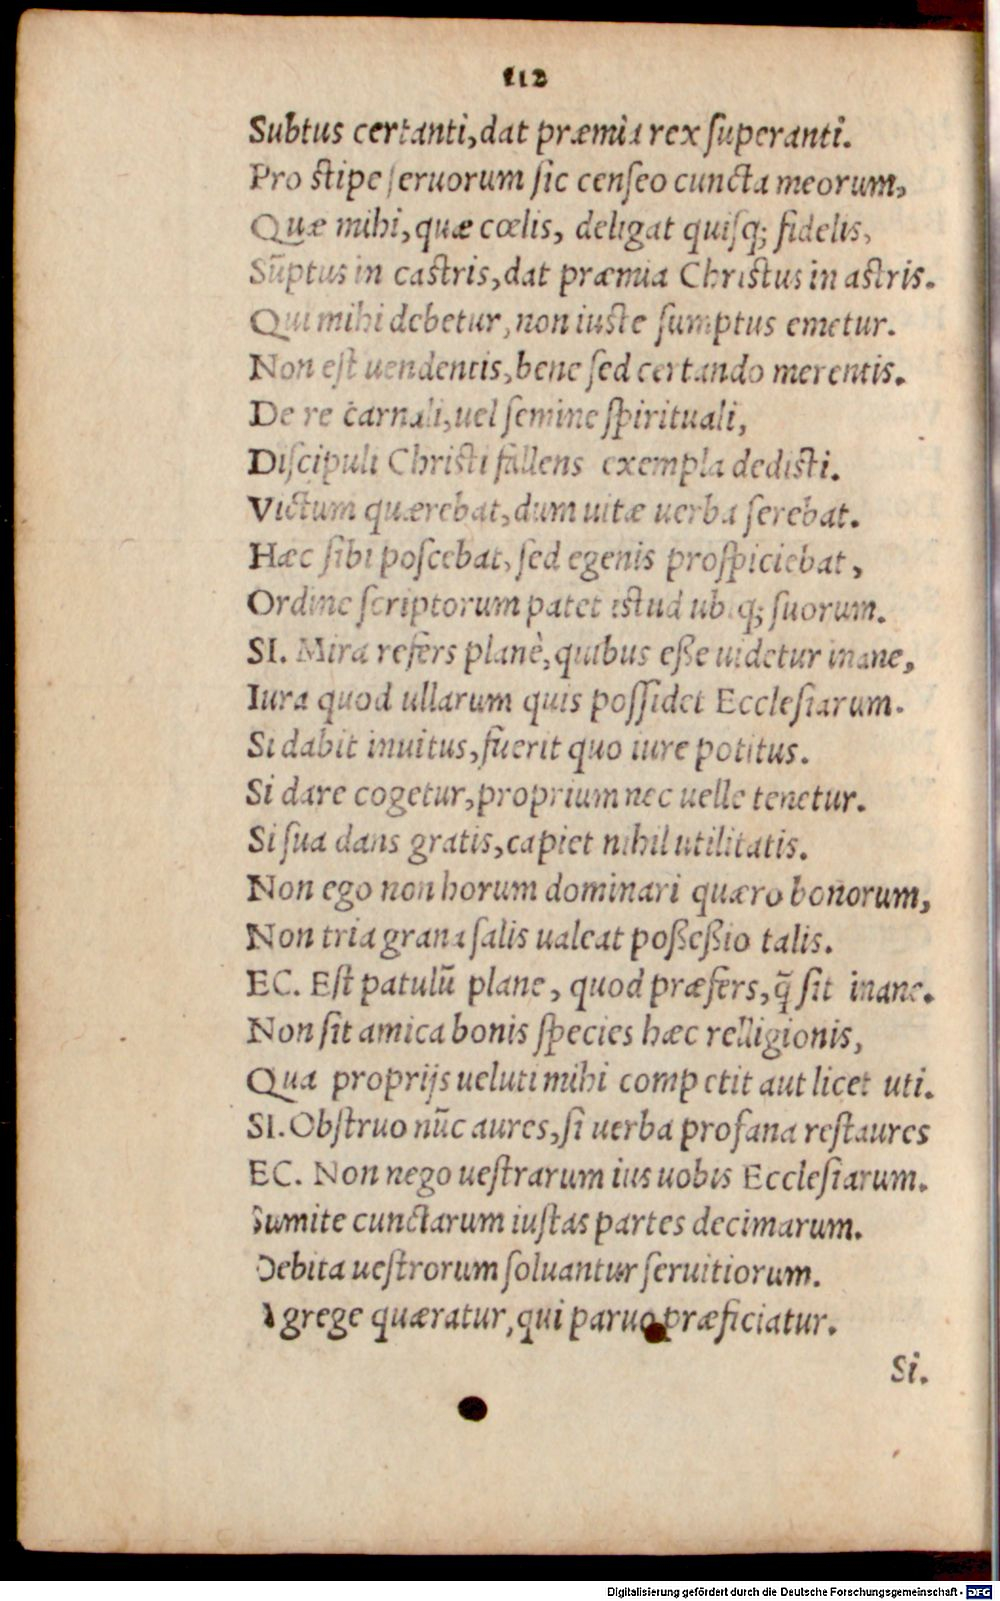 112
Subtus certanti, dat præmia rex ſuperanti.
Pro ſtipe ſeruorum ſic cenſeo cuncta meorum,
Quæ mihi, quæ cœlis, deligat quiſq; fidelis,
Sūptus in caſtris, dat præmia Chriſtus in aſtris.
Qui mihi debetur, non iuste ſumptus emetur.
Non eſt uendentis, bene ſed certando merentis.
De re carnali, uel ſemine ſpirituali,
Diſcipuli Chriſti fallens exempla dediſti.
Victum quærebat, dum uitæ uerba ſerebat.
Hæc ſibi poſcebat, ſed egenis proſpiciebat,
Ordine ſcriptorum patet iſtud ubiq; ſuorum.
SI. Mira refers planè, quibus eſſe uidetur inane,
Iura quod ullarum quis poſſidet Eccleſiarum.
Si dabit inuitus, fuerit quo iure potitus.
Si dare cogetur, proprium nec uelle tenetur.
Si ſua dans gratis, capiet nihil utilitatis.
Non ego non horum dominari quæro bonorum,
Non tria grana ſalis ualeat poßeßio talis.
EC. Eſt patulū plane, quod præfers, q̄ ſit inane.
Non ſit amica bonis ſpecies hæc relligionis,
Qua proprijs ueluti mihi competit aut licet uti.
SI. Obſtruo nūc aures, ſi uerba profana reſtaures
EC. Non nego ueſtrarum ius uobis Eccleſiarum.
Sumite cunctarum iuſtas partes decimarum.
Debita ueſtrorum ſoluantur ſeruitiorum.
A grege quæratur, qui paruo præficiatur.
Si.
Digitalisierung gefördert durch die Deutsche Forschungsgemeinschaft - DFG